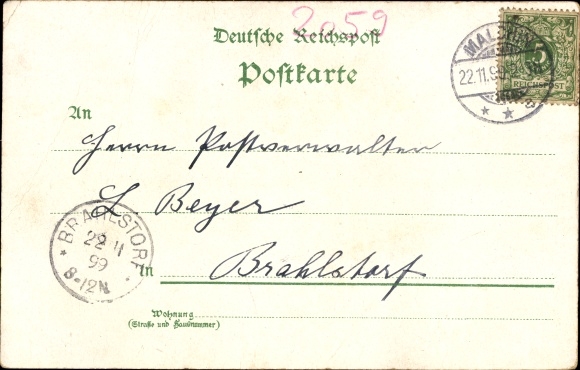 2059
Deutsche Reichspost
Postkarte
5
REICHSPOST
22.11.99
An
Herrn Postverwalter
L. Beyer
BRAHLSTORF
22 11
99
8-12N
In Brahlstorf
Wohnung
(Straße und Hausnummer)